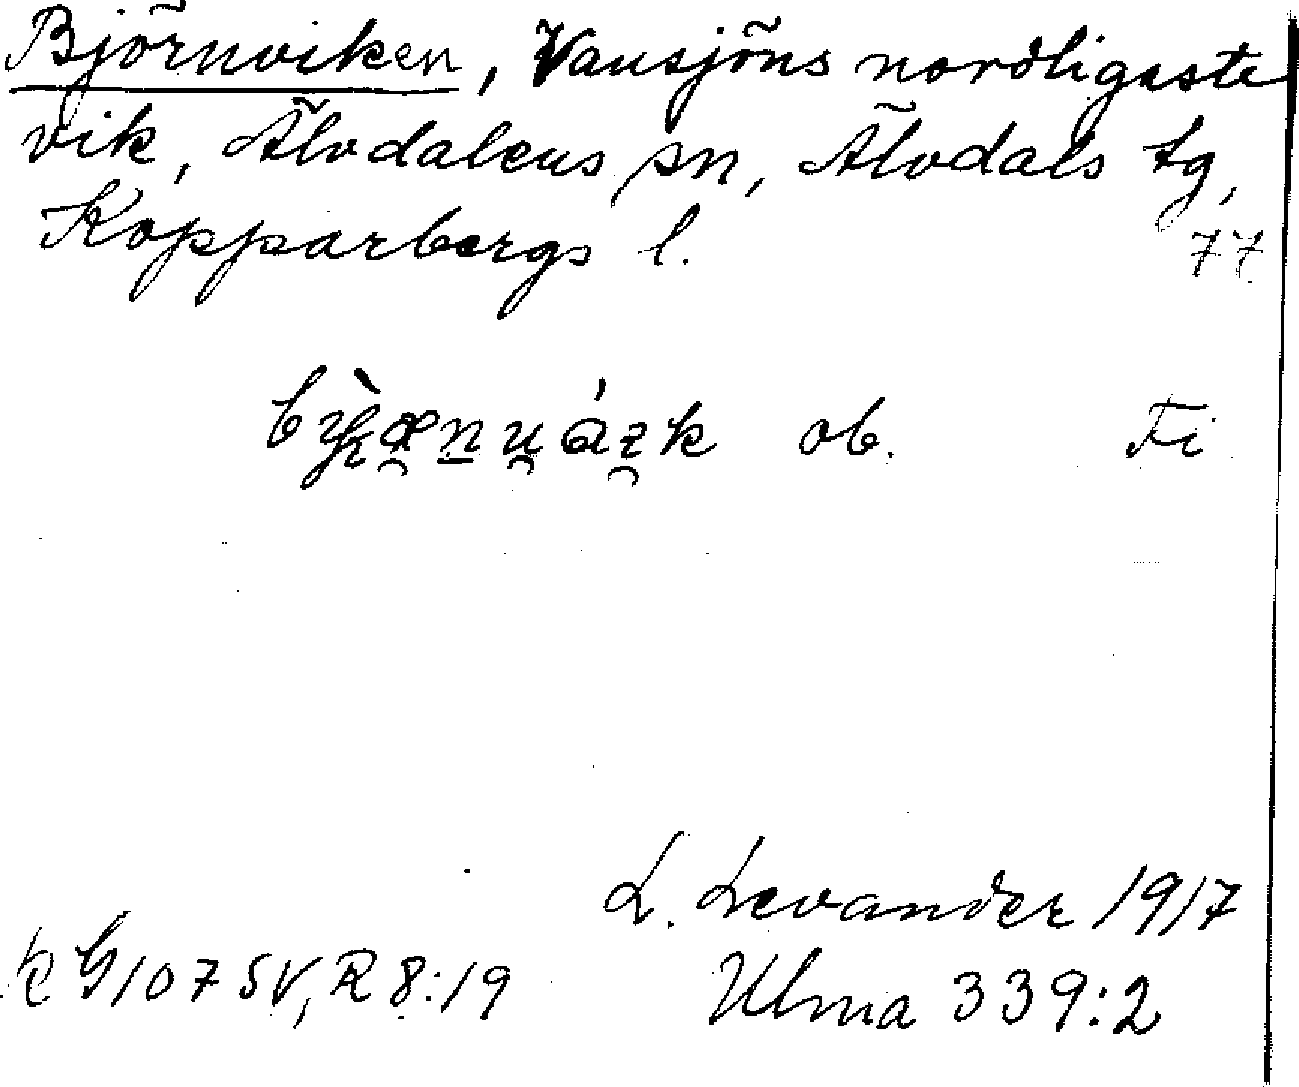 Björnviken, Vansjöns nordligaste
vik, Älvdalens sn, Älvdals tg,
Kopparbergs l. 77
ob. Fi
L. Levander 1917
RG 107 SV, R 8:19 Ulma 339:2